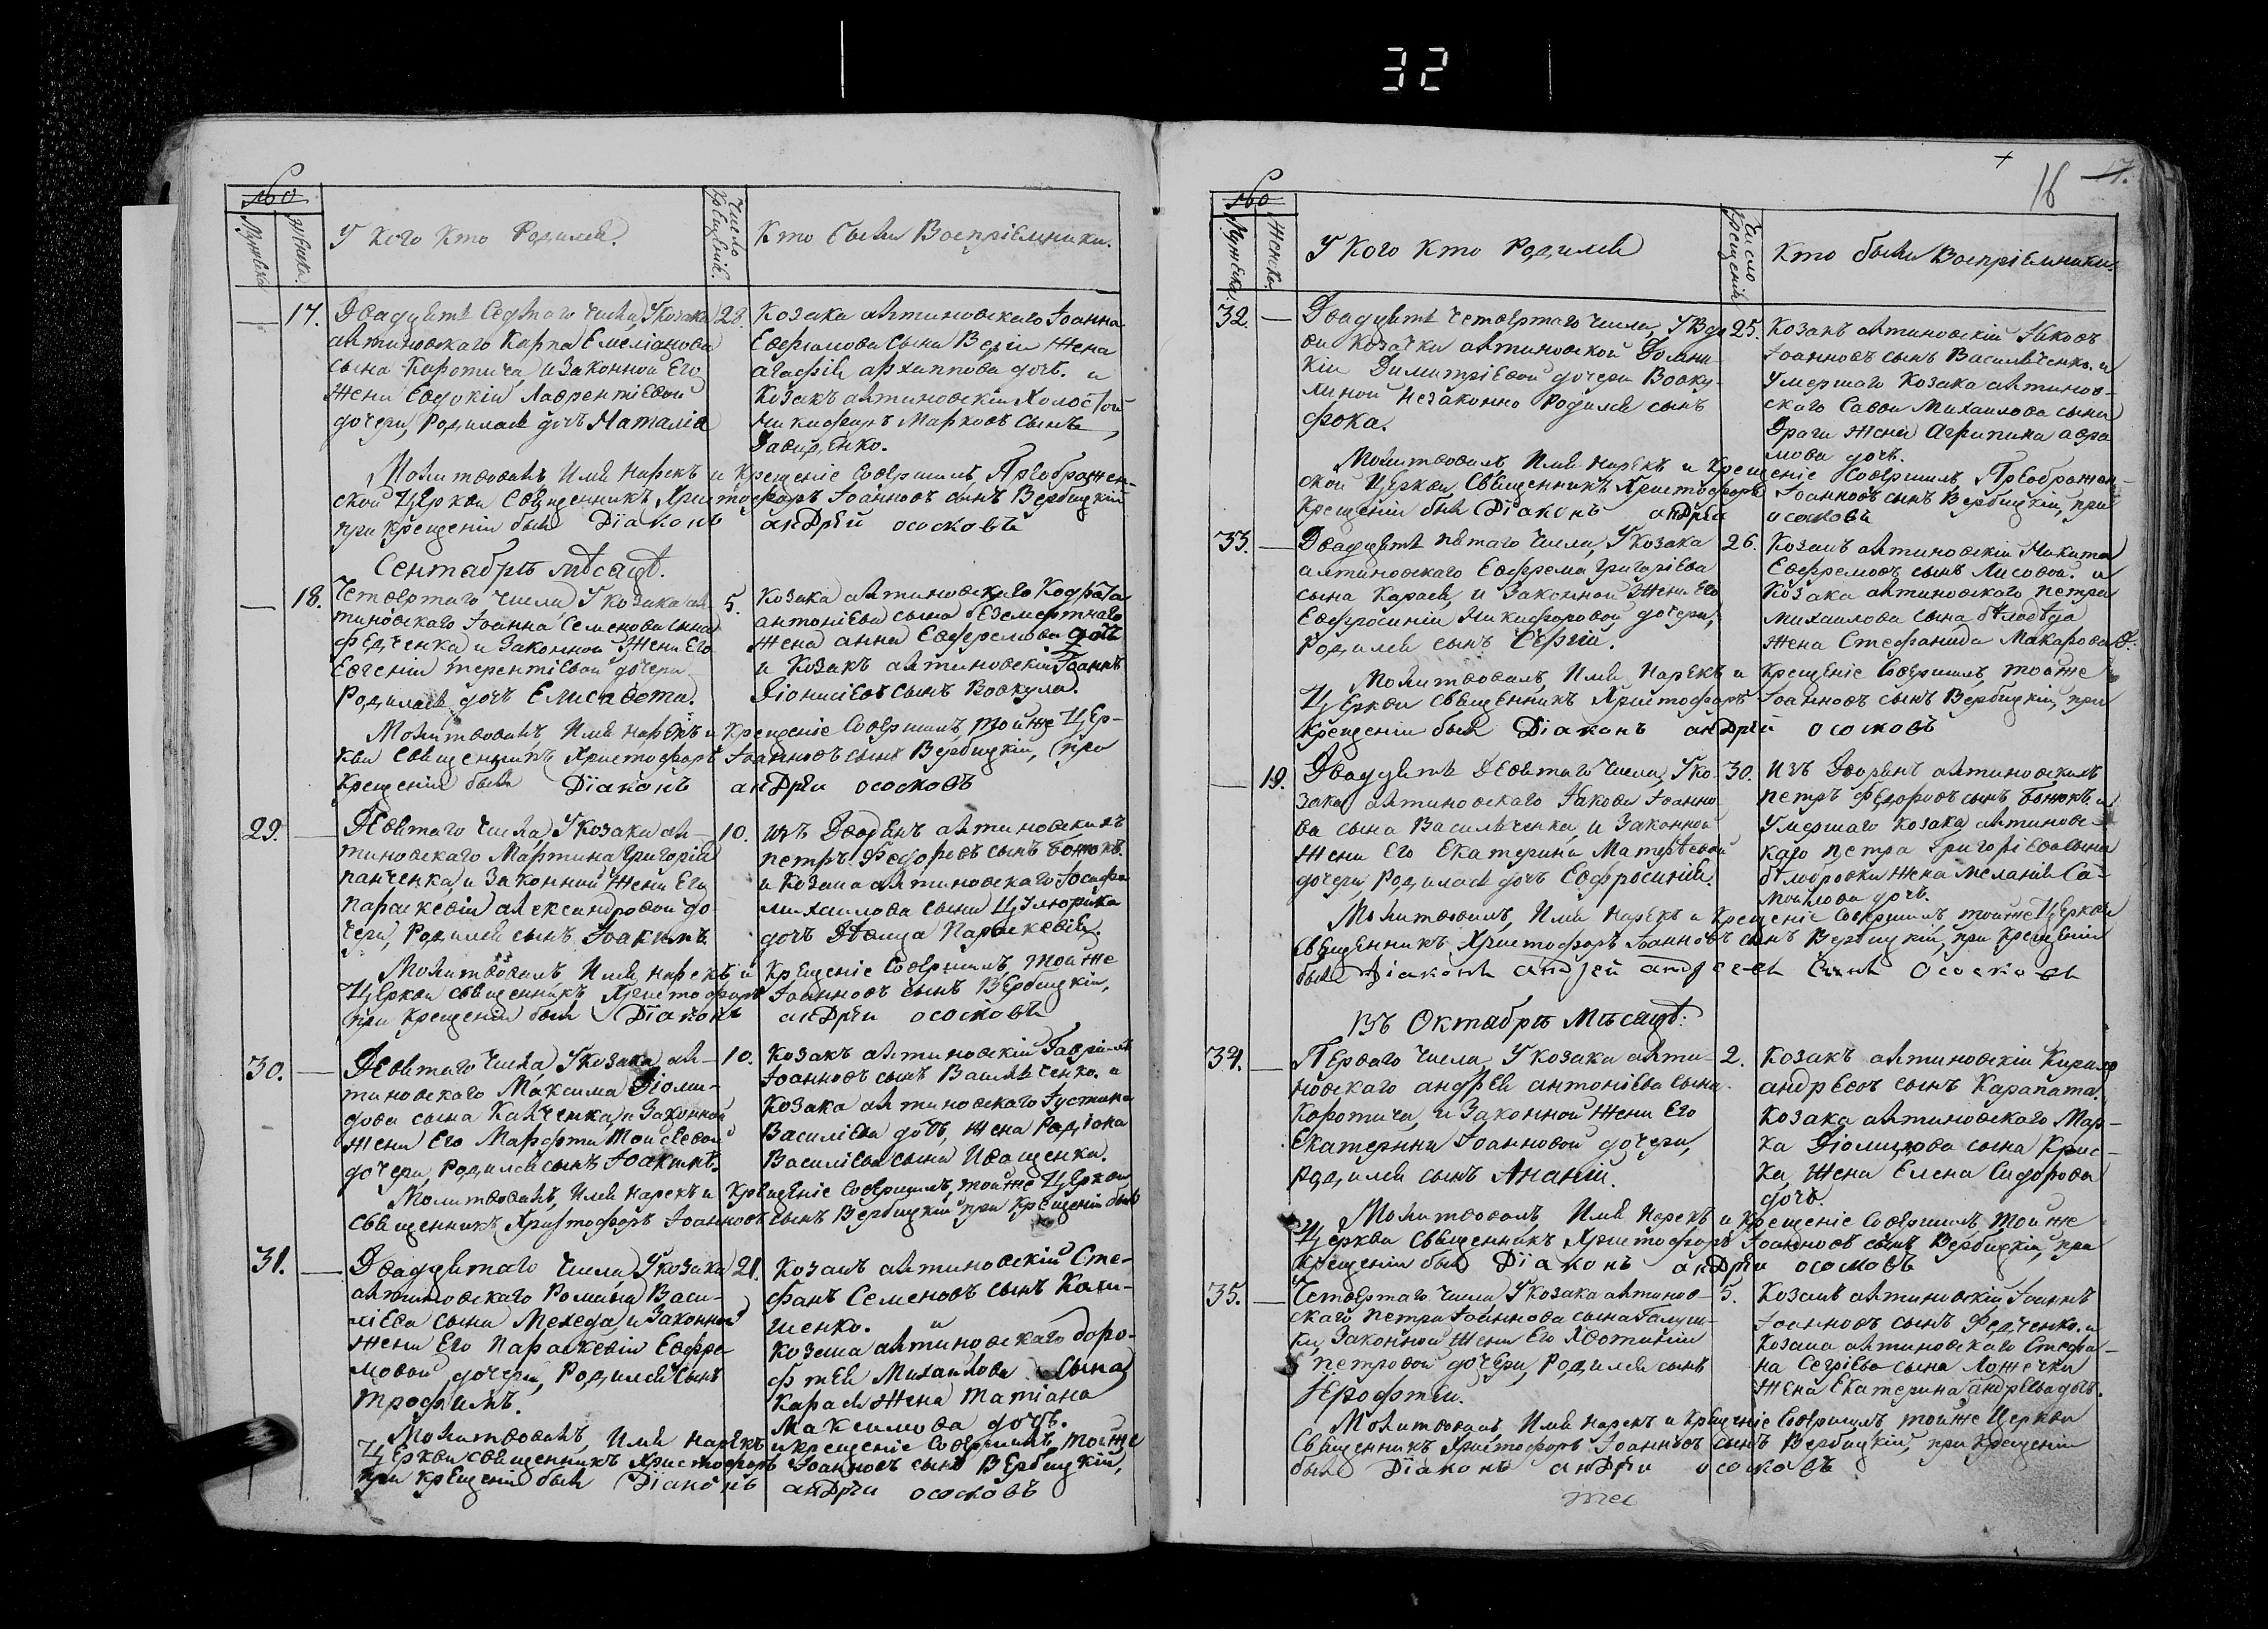 32
16 17.
№
Мужеска
Женска.
У Кого Кто Родился.
Число Крещения.
Кто были Воспріемники.
17.
Двадцять Седмаго числа, У козака
алтиновскаго Карпа Емеліанова
сына Каротича, и Законной Его
жены Евдокіи Лаврентіевой
дочери, Родилась дочь Наталія
28.
Козака алтиновскаго Іоанна
сына жена
агафія архиппова дочь. и
Козакъ алтиновскій Холостой
Никифоръ Марковъ сынъ
Давиденко.
Молитвовалъ, Имя нарекъ и Крещеніе Совершилъ, Преображен-
ской Церкви Священникъ Христофоръ Іоанновъ сынъ Вербицкій
при крещеніи былъ Діаконъ андрѣй ососковъ
Сентабрѣ мѣсяцѣ.
18.
Четвертаго числа, У козака ал-
тиновскаго Іоанна Семенова сына
Федченка и Законной Жены Его
Евгеніи терентіевой дочери
Родилась дочь Елисавета.
5.
Козака алтиновскаго Кодрата
антоніева сына безсмертнаго
жена анна Ефремова дочь
и Козакъ алтиновскій Іоаннъ
Діонисіевъ сынъ Вовкула.
Молитвовалъ, Имя нарекъ и Крещеніе Совершилъ, тойже Цер-
кви Священникъ Христофоръ Іоанновъ сынъ Вербицкій, при
Крещеніи былъ Діаконъ андрѣй ососковъ
29.
Девятаго числа, У козака ал-
тиновскаго Мартина Григорія
панченка, и Законной жены Его
параскевіи александровой до-
чери, Родился сынъ Іоакимъ
10.
изъ Дворянъ алтиновскихъ
петръ Федоровъ сынъ
и Козака алтиновскаго Іосифа
михаилова сына Цѣлюрика
дочь Дѣвица Параскевія.
Молитвовалъ, Имя нарекъ и Крещеніе Совершилъ, тойже
Церкви священникъ Христофоръ Іоанновъ сынъ Вербицкій,
при Крещеніи былъ Діаконъ андрѣй ососковъ
30.
Девятаго числа, У козака ал-
тиновскаго Максима Діоми-
дова сына Калченка, и Законной
жены Его Марфы Моисѣевой
дочери, Родился сынъ Іоакимъ.
10.
Козакъ алтиновскій Гавріилъ
Іоанновъ сынъ Василченко. и
Козака алтиновскаго Іустина
Василіева дочь, жена Радіона
Василіева сына Иващенка.
Молитвовалъ, Имя нарекъ и Крещеніе Совершилъ, тойже Церкви
Священникъ Христофоръ Іоанновъ сынъ Вербицкій при Крещеніи былъ
31.
Двадцятаго числа, У козака
алтиновскаго Романа Васи-
ліева сына Мехеда, и Законной
жены Его Параскевіи Евфре
мовой дочери, Родился Сынъ
трофимъ.
21.
Козакъ алтиновскій Сте-
фанъ Семеновъ сынъ Кали-
шенко. и
Козака алтиновскаго доро-
фтея Михаилова сына
Карася жена татіана
Максимова дочь.
Молитвовалъ, Имя нарекъ и крещеніе Совершилъ, тойже
Церкви священникъ Христофоръ Іоанновъ сынъ Вербицкій,
при крещеніи былъ Діаконъ андрѣй ососковъ
№
Мужеска.
Женска.
У Кого Кто Родился
Число Крещенія
Кто были Воспріемники.
32.
Двадцять четвертаго числа, У Вдо
вы козачки алтиновской Домни
кіи Димитріевой дочери Вовку-
линой незаконно Родился сынъ
фока.
25.
Козакъ алтиновскій Іаковъ
Іоанновъ сынъ Василченко. и
Умершаго Козака алтинов-
скаго Саввы Михаилова сына
Драги жена Агрипина авра
мова дочь.
Молитвовалъ Имя нарекъ и крещеніе Совершилъ, Преображен-
ской Церкви Священникъ Христофоръ Іоанновъ сынъ Вербицкій, при
Крещеніи былъ Діаконъ андрѣй ососковъ
33.
Двадцять пятаго числа, У козака
алтиновскаго Евфрема Григоріева
сына Карася, и Законной жены его
Евфросиніи Никифоровой дочери,
Родился сынъ Сергій.
26.
Козакъ алтиновскій Никита
Евфремовъ сынъ Лисовой. и
Козака алтиновскаго петра
михаилова сына
жена Стефанида Макарова д.
Молитвовалъ, Имя Нарекъ и Крещеніе Совершилъ, тойже
Церкви священникъ Христофоръ Іоанновъ сынъ Вербицкій, при
Крещеніи былъ Діаконъ андрѣй ососковъ
19.
Двадцять Девятаго числа, У ко-
зака алтиновскаго Іакова Іоанно-
ва сына Василченка, и Законной
жены Его Екатерины Матвѣевой
дочери, Родилася дочь Евфросинія.
30.
Изъ Дворянъ алтиновскихъ
петръ Федоровъ сынъ и
Умершаго козака алтинов-
скаго петра григоріева сына
бѣлобровки жена меланія Са-
моилова дочь.
Молитвовалъ, Имя нарекъ и Крещеніе Совершилъ, тойже Церкви
священникъ Христофоръ Іоанновъ сынъ Вербицкій, при крещеніи
былъ Діаконъ андрей андреевъ сынъ Ососковъ
Въ Октабрѣ Мѣсяцѣ:
34.
Перваго числа, У козака алти-
новскаго андрея антоніева сына
Каротича, и Законной жены Его
Екатерины Іоанновой дочери,
Родился сынъ Ананій.
2.
Козакъ алтиновскій Кирило
андреевъ сынъ Карапата.
Козака алтиновскаго Мар-
ка Діомидова сына Крис-
ка, жена Елена Сидорова
дочь.
Молитвовалъ, Имя Нарекъ и Крещеніе Совершилъ, тойже
Церкви Священникъ Христофоръ Іоанновъ сынъ Вербицкій, при
Крещеніи былъ Діаконъ андрѣй ососковъ
35.
Четвертаго числа У козака алтинов-
скаго петра Іоаннова сына Галуш-
ки, Законной жены Его Хвотиніи
петровой дочери, Родился сынъ
Іерофтей.
5.
Козакъ алтиновскій Іоаннъ
Іоанновъ сынъ Федченко. и
Козака алтиновскаго Стефа-
на Сергіева сына Ложечки
жена Екатерина андрѣева дочь.
Молитвовалъ, Имя нарекъ и Крещеніе Совершилъ, тойже Церкви
Священникъ Христофоръ Іоанновъ сынъ Вербицкій, при крещеніи
былъ Діаконъ андрѣй ососковъ